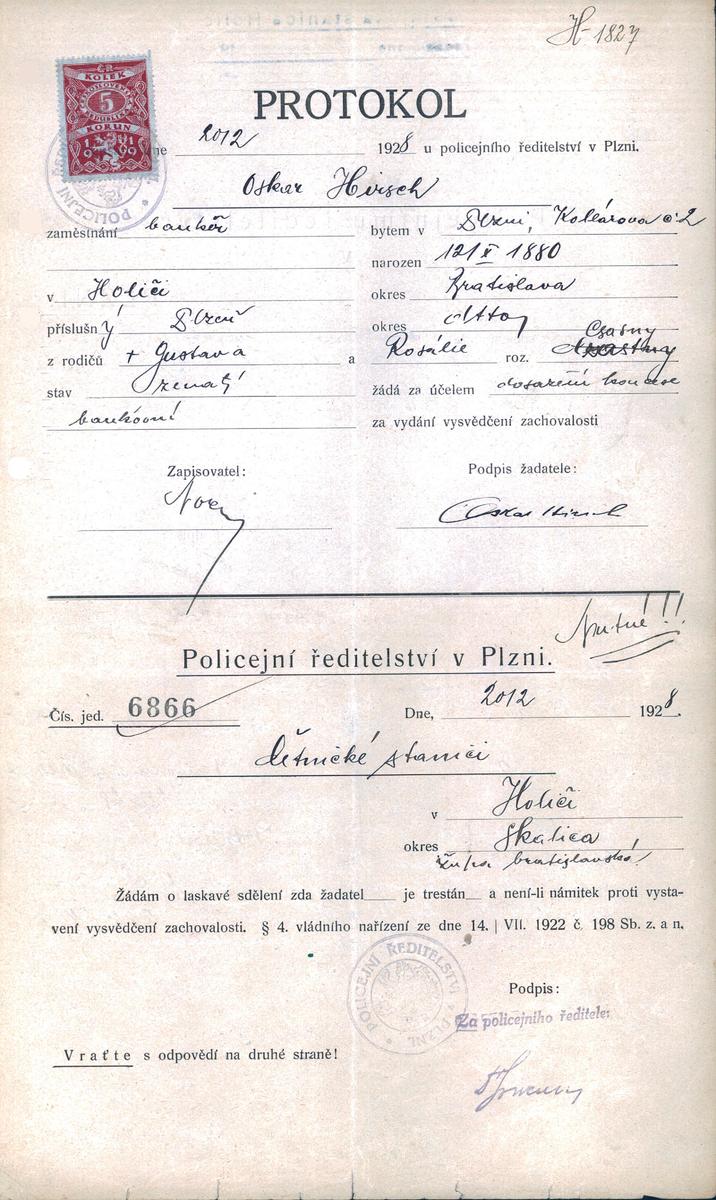 H-1827
ČR
KOLEK
5
KORUN
1919
PROTOKOL
ne 20/2 1928 u policejního ředitelství v Plzni.
Oskar Hirsch
zaměstnání bankéř
bytem v Plzni, Kollárova č. 2
narozen 12/X 1880
v Holiči
okres Bratislava
příslušný Plzeň
okres
z rodičů + Gustava a Rosálie roz. Csasny
stav ženatý
žádá za účelem dosažení koncese
bankovní
za vydání vysvědčení zachovalosti
Zapisovatel:
Podpis žadatele:
Oskar Hirsch
Nutné!!!
Policejní ředitelství v Plzni.
Čís. jed. 6866
Dne, 20/2 1928.
četnické stanici
v Holiči
okres Skalica
župa bratislavská
Žádám o laskavé sdělení zda žadatel je trestán a není-li námitek proti vysta-
vení vysvědčení zachovalosti. § 4. vládního nařízení ze dne 14. | VII. 1922 č. 198 Sb. z. a n.
POLICEJNÍ ŘEDITELSTVÍ V PLZNI
Podpis:
Za policejního ředitele:
Vraťte s odpovědí na druhé straně!